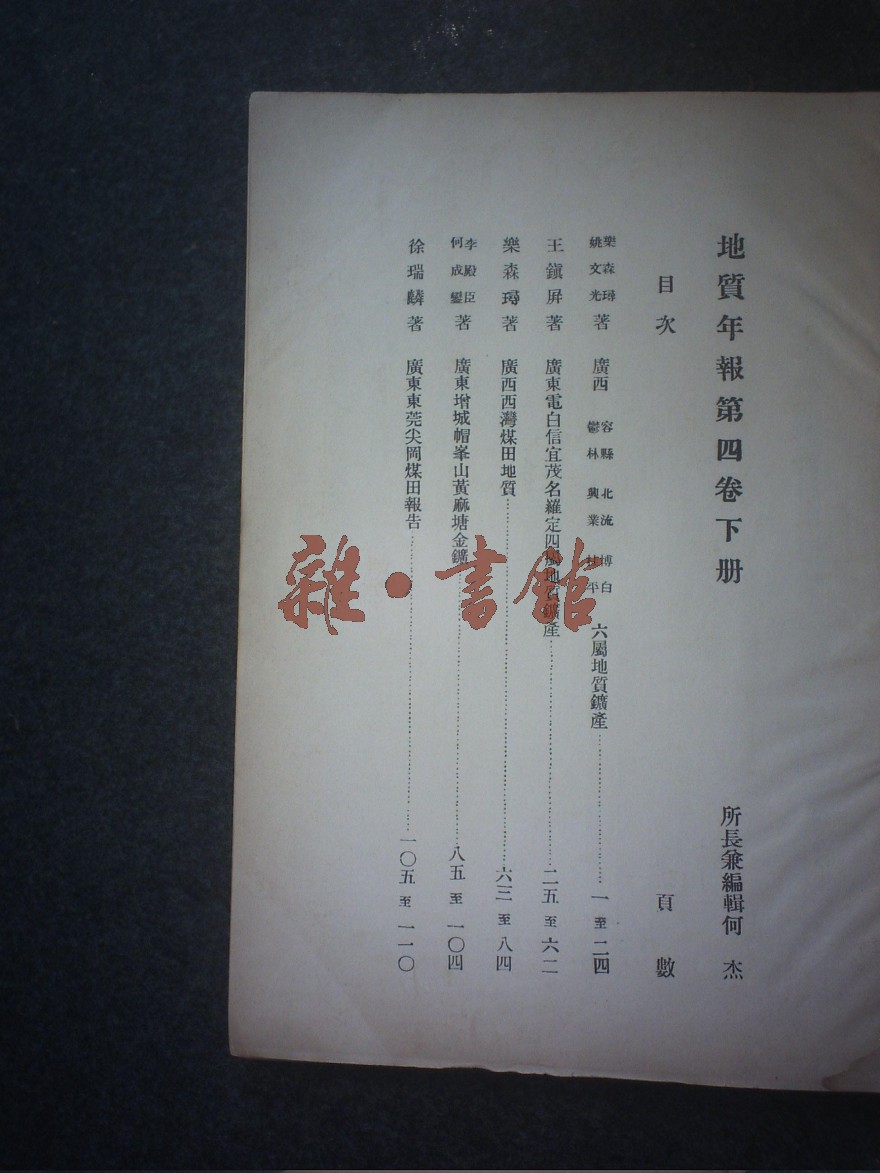 地質年報第四卷下册
所長兼編輯何杰
目次
頁數
樂森璕
姚文光
著
廣西
容縣 北流 博白
鬱林 興業 桂平
六屬地質鑛產
一至二四
王鎭屏著 廣東電白信宜茂名羅定四屬地質鑛產
二五至六二
樂森璕著 廣西西灣煤田地質
六三至八四
李殿臣
何成
著
廣東增城帽峯山黃麻塘金鑛
八五至一〇四
徐瑞麟著 廣東東莞尖岡煤田報告
一〇五至一一〇
雜·書館